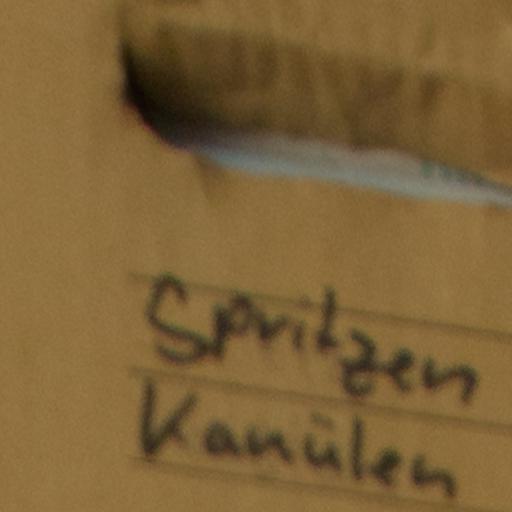 Spritzen
Kanülen